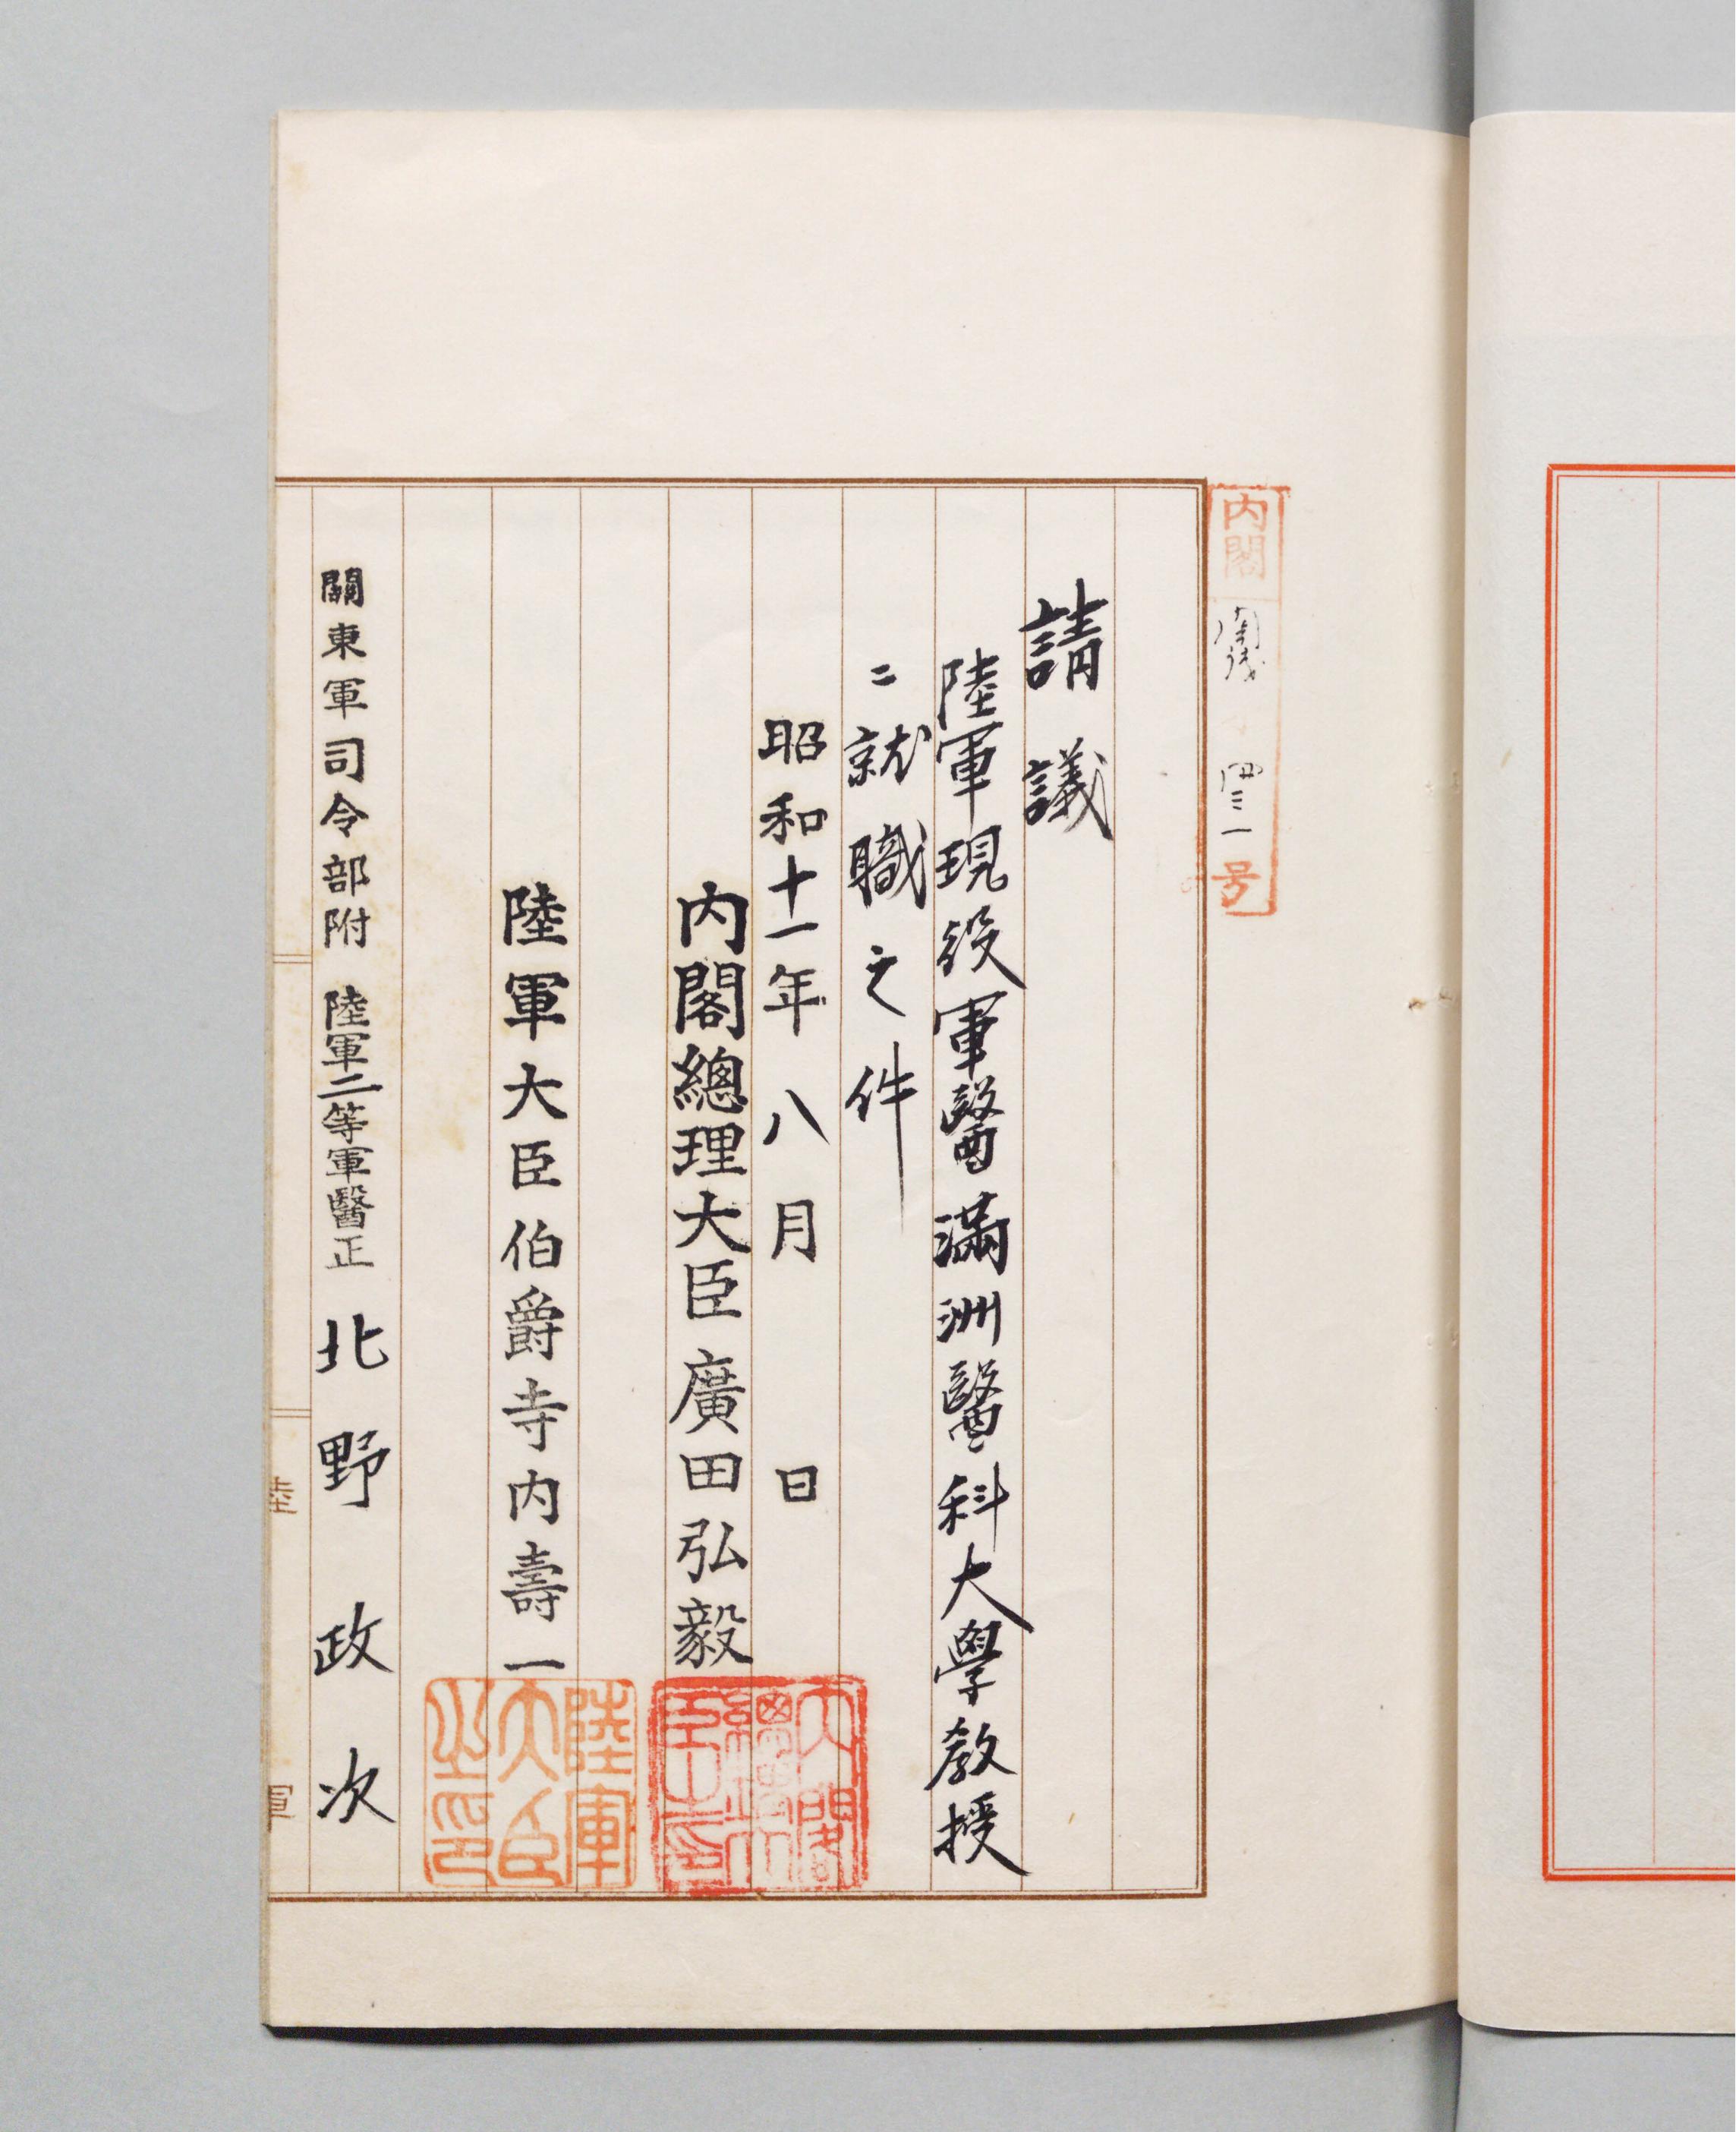 内閣
号
請議
陸軍現役軍醫滿洲醫科大學教授
ニ就職之件
昭和十一年八月 日
内閣總理大臣廣田弘毅
内閣總理大臣之印
陸軍大臣伯爵寺内壽一
陸軍大臣之印
關東軍司令部附 陸軍二等軍醫正 北野政次
陸軍